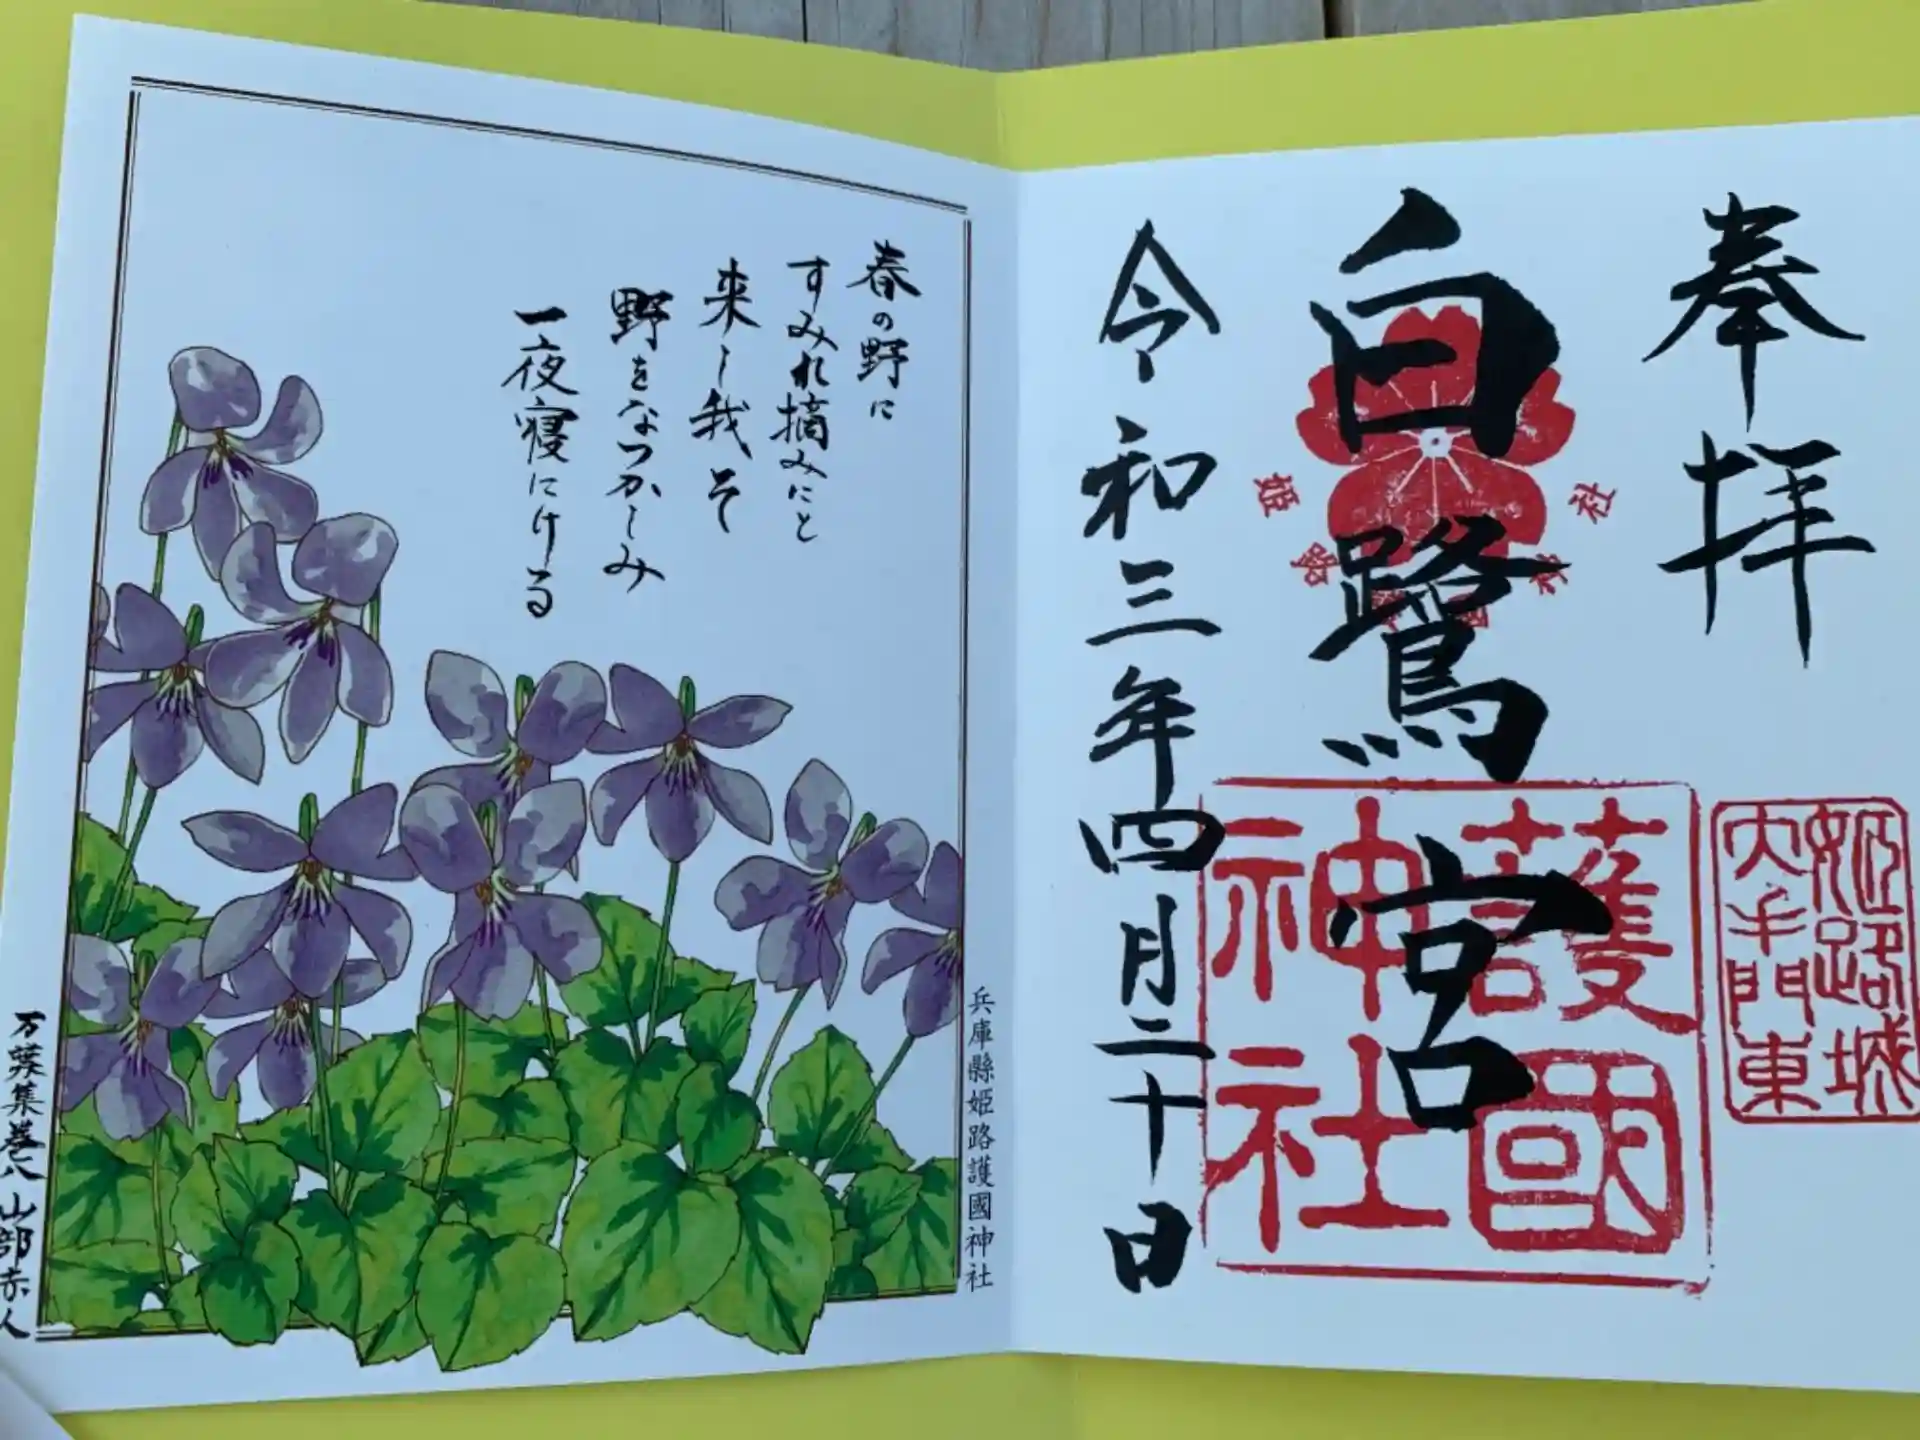 奉拝
白鷺宮
令和三年四月二十日
姫路
社
護國
神社
姫路城
大手門東
春の野に
すみれ摘みにと
来し我そ
野をなつかしみ
一夜寝にける
兵庫縣姫路護國神社
万葉集巻八 山部赤人